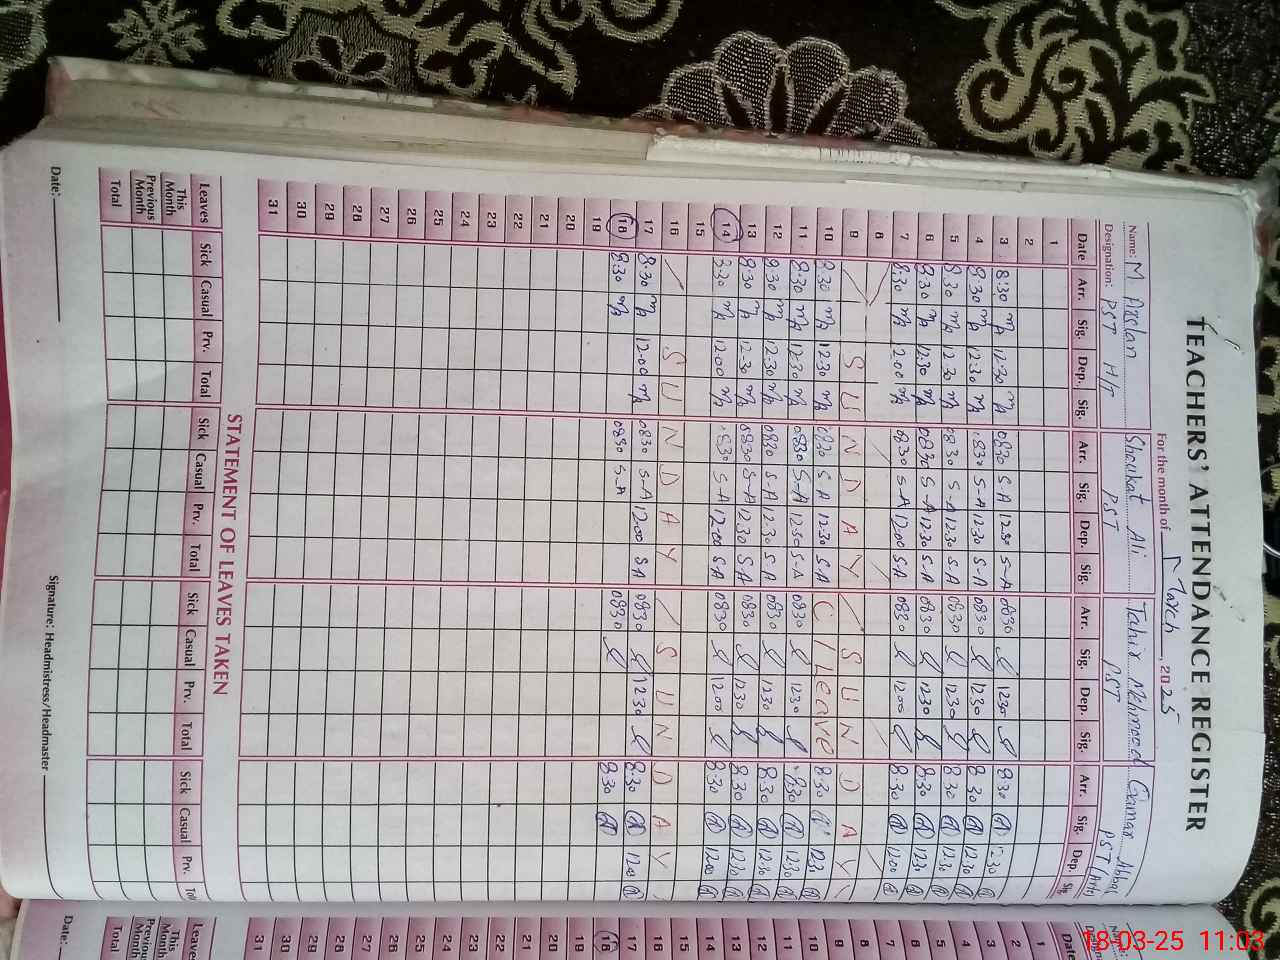 TEACHERS' ATTENDANCE REGISTER
For the month of March, 2025
Name: M Arslan Shoukat Ali Tahir Mehmood Qamar Abbas
Designation: PST H/T PST PST PST (Arts)
Date Arr. Sig. Dep. Sig. Arr. Sig. Dep. Sig. Arr. Sig. Dep. Sig. Arr. Sig. Dep. Sig.
1
2
3 8:30 12:30 0830 S-A 12:30 S-A 0830 1230 8:30 12:30
4 8:30 12:30 0830 S-A 12:30 S-A 0830 1230 8:30 12:30
5 8:30 12:30 0830 S-A 12:30 S-A 0830 1230 8:30 12:30
6 8:30 12:30 0830 S-A 12:30 S-A 0830 1230 8:30 1230
7 8:30 12:00 0830 S-A 1200 S-A 0830 1200 8:30 1200
8
9 S U N D A Y S U N D A Y
10 8:30 12:30 0830 S-A 12:30 S-A C/Leave 8:30 1230
11 8:30 12:30 0830 S-A 12:30 S-A 0830 1230 8:30 12:30
12 8:30 12:30 0830 S-A 12:30 S-A 0830 1230 8:30 12:30
13 8:30 12:30 0830 S-A 12:30 S-A 0830 1230 8:30 1230
14 8:30 12:00 0830 S-A 12:00 S-A 0830 1200 8:30 1200
15
16 S U N D A Y S U N D A Y
17 8:30 12:00 0830 S-A 1200 SA 0830 1230 8:30 1200
18 8:30 0830 S-A 0830 8:30
19
20
21
22
23
24
25
26
27
28
29
30
31
STATEMENT OF LEAVES TAKEN
Leaves Sick Casual Prv. Total Sick Casual Prv. Total Sick Casual Prv. Total Sick Casual Prv.
This Month
Previous Month
Total
Date: Signature: Headmistress/Headmaster
Name:
Date
1
2
3
4
5
6
7
8
9
10
11
12
13
14
15
16
17
18
19
20
21
22
23
24
25
26
27
28
29
30
31
Leaves
This Month
Previous Month
Total
Date:
18-03-25 11:03